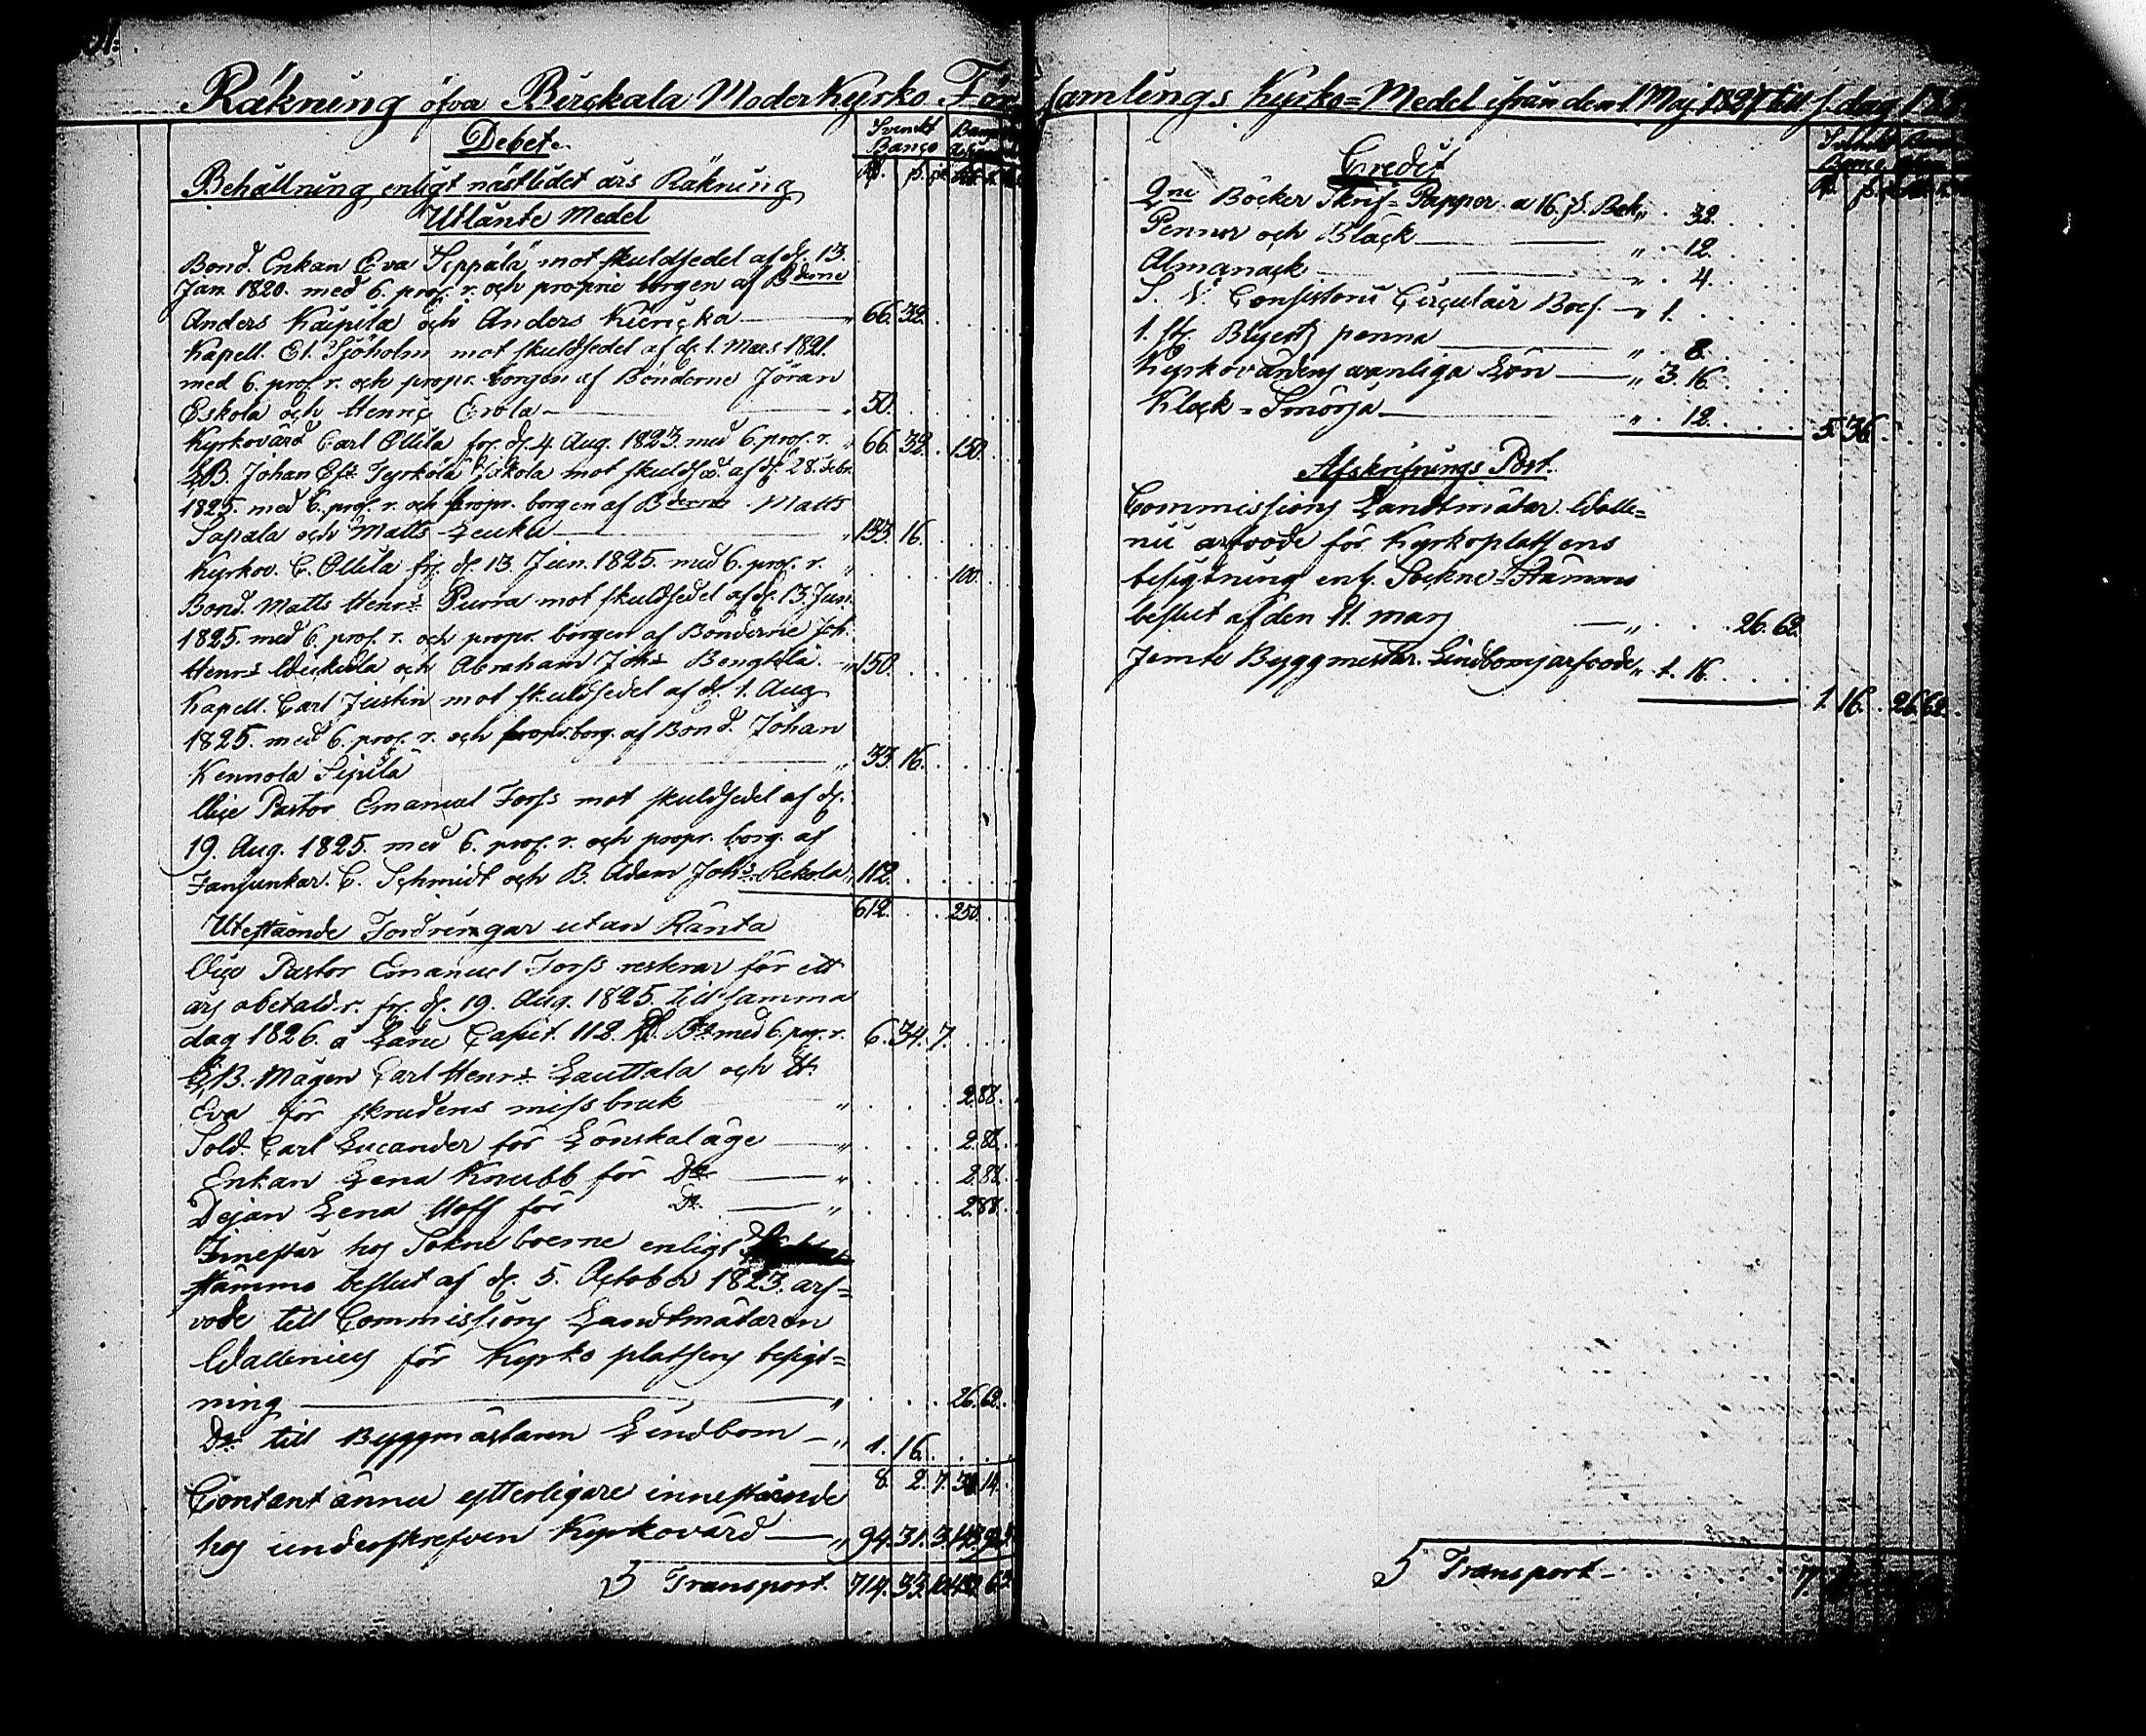 Räkning öfver Birckala Moderkyrko För
Debet.
Svenskt Banço
Behållning enligt nästledet års Räkning
Utlånte Medel
Bond. Enkan Eva Seppälä mot skuldsedel af d. 13.
Jan. 1820. med 6. proc. r. och proprie borgen af Bderne
Anders Kaupila och Anders 66. 32.
Kapell. El. Sjöholm mot skuldsedel af d. 1. Mars 1821.
med 6. proc. r. och propr. borgen af Bönderne Jöran
Eskola och Henric Erola 50.
Kyrkovärd Carl Ollila frs. d. 4. Aug. 1823. med 6. proc. r. 66. 32. 150.
B. Johan Tyrkölä mot skulds. af d. 28. Febr.
1825. med 6. proc. r. och propr. borgen af Bderne Matts
och Matts Leuku 133. 16.
Kyrkov. C. Ollila frs. d. 13. Jun. 1825. med 6. proc. r. 100.
Bond. Matts Henrs. Purra mot skuldsedel af d. 13. Jun.
1825. med 6. proc. r. och propr. borgen af Bönderne Joh.
Henrs. och Abraham Johs. Bengtilä 150.
Kapell. Carl Justin mot skuldsedel af d. 1. Aug
1825. med 6. proc. r. och propr. borg. af Bond. Johan
Kennola Sipilä 33. 16.
Vice Pastor Emanuel Forss mot skuldsedel af d.
19. Aug. 1825. med 6. proc. r. och propr. borg. af
Fanjunkar. C. Schmidt och B. Adam Johs. Rekola 112.
612. 250.
Utestående Fordringar utan Ränta
Vice Pastor Emanuel Forss resterar för ett
års obetald r. frs. d. 19. Aug. 1825. till samma
dag 1826. å Låne Capit. 112. Rd. Bco med 6. proc. r. 6. 34. 7.
B. Mågen Carl Henrs. Lauttala och H.
Eva för skrudens missbruk 2. 88.
Sold. Carl Lucander för Lönskaläge 2. 88.
Enkan Lena Knubb för Do 2. 88.
Dejan Lena Hoff för Do 2. 88.
Innestår hos Sokneboerne enligt
stämmo beslut af d. 5. October 1823. arf=
vode till Commissions Landtmätaren
Wallenius för Kyrko platsens besigt=
ning 26. 62.
Do till Byggmästaren Lindbom 1. 16.
8. 2. 7. 38. 14.
Contant ännu ytterligare innestående
hos underskrefven Kyrkovärd 94. 31. 3.
Transport 714. 33. 10.
samlings Kyrko=Medel ifrån den 1 Maj 1827 till s. dag
Credit
2ne Böcker Skrif=Papper a 16. s. Bok. 32.
Pennor och Bläck 12.
Almanack 4.
Consistorii Circulair Bref. 1.
1. st. Blyertz penna 8.
Kyrkovärdens vanliga Lön 3. 16.
Klock=Smörja 12.
5. 36.
Afskrifnings Post.
Commissions Landtmätar. Walle=
nii arfvode för Kyrkoplatsens
besigtning enl. Sockne=Stämmo
beslut af den 11. marj 26. 62.
Jemte Byggmestar. Lindboms arfvode 1. 16.
1. 16. 26. 62.
Transport